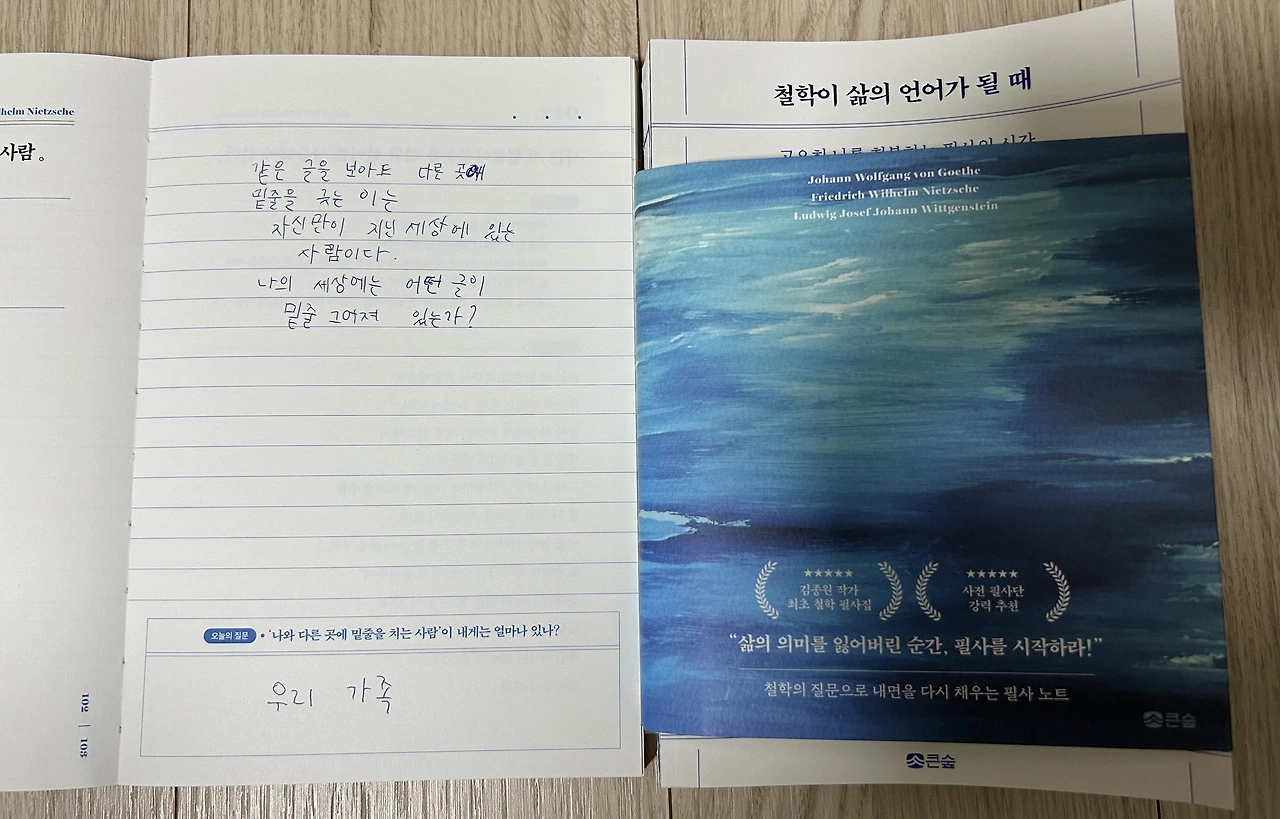 helm Nietzsche
사람。
같은 글을 보아도 다른 곳에
밑줄을 긋는 이는
자신만이 지닌 세상에 있는
사람이다.
나의 세상에는 어떤 글이
밑줄 그어져 있는가?
오늘의 질문 • ‘나와 다른 곳에 밑줄을 치는 사람’이 내게는 얼마나 있나?
우리 가족
102 | 103
철학이 삶의 언어가 될 때
Johann Wolfgang von Goethe
Friedrich Wilhelm Nietzsche
Ludwig Josef Johann Wittgenstein
★★★★★
김종원 작가
최초 철학 필사집
★★★★★
사전 필사단
강력 추천
“삶의 의미를 잃어버린 순간, 필사를 시작하라!”
철학의 질문으로 내면을 다시 채우는 필사 노트
큰숲
큰숲